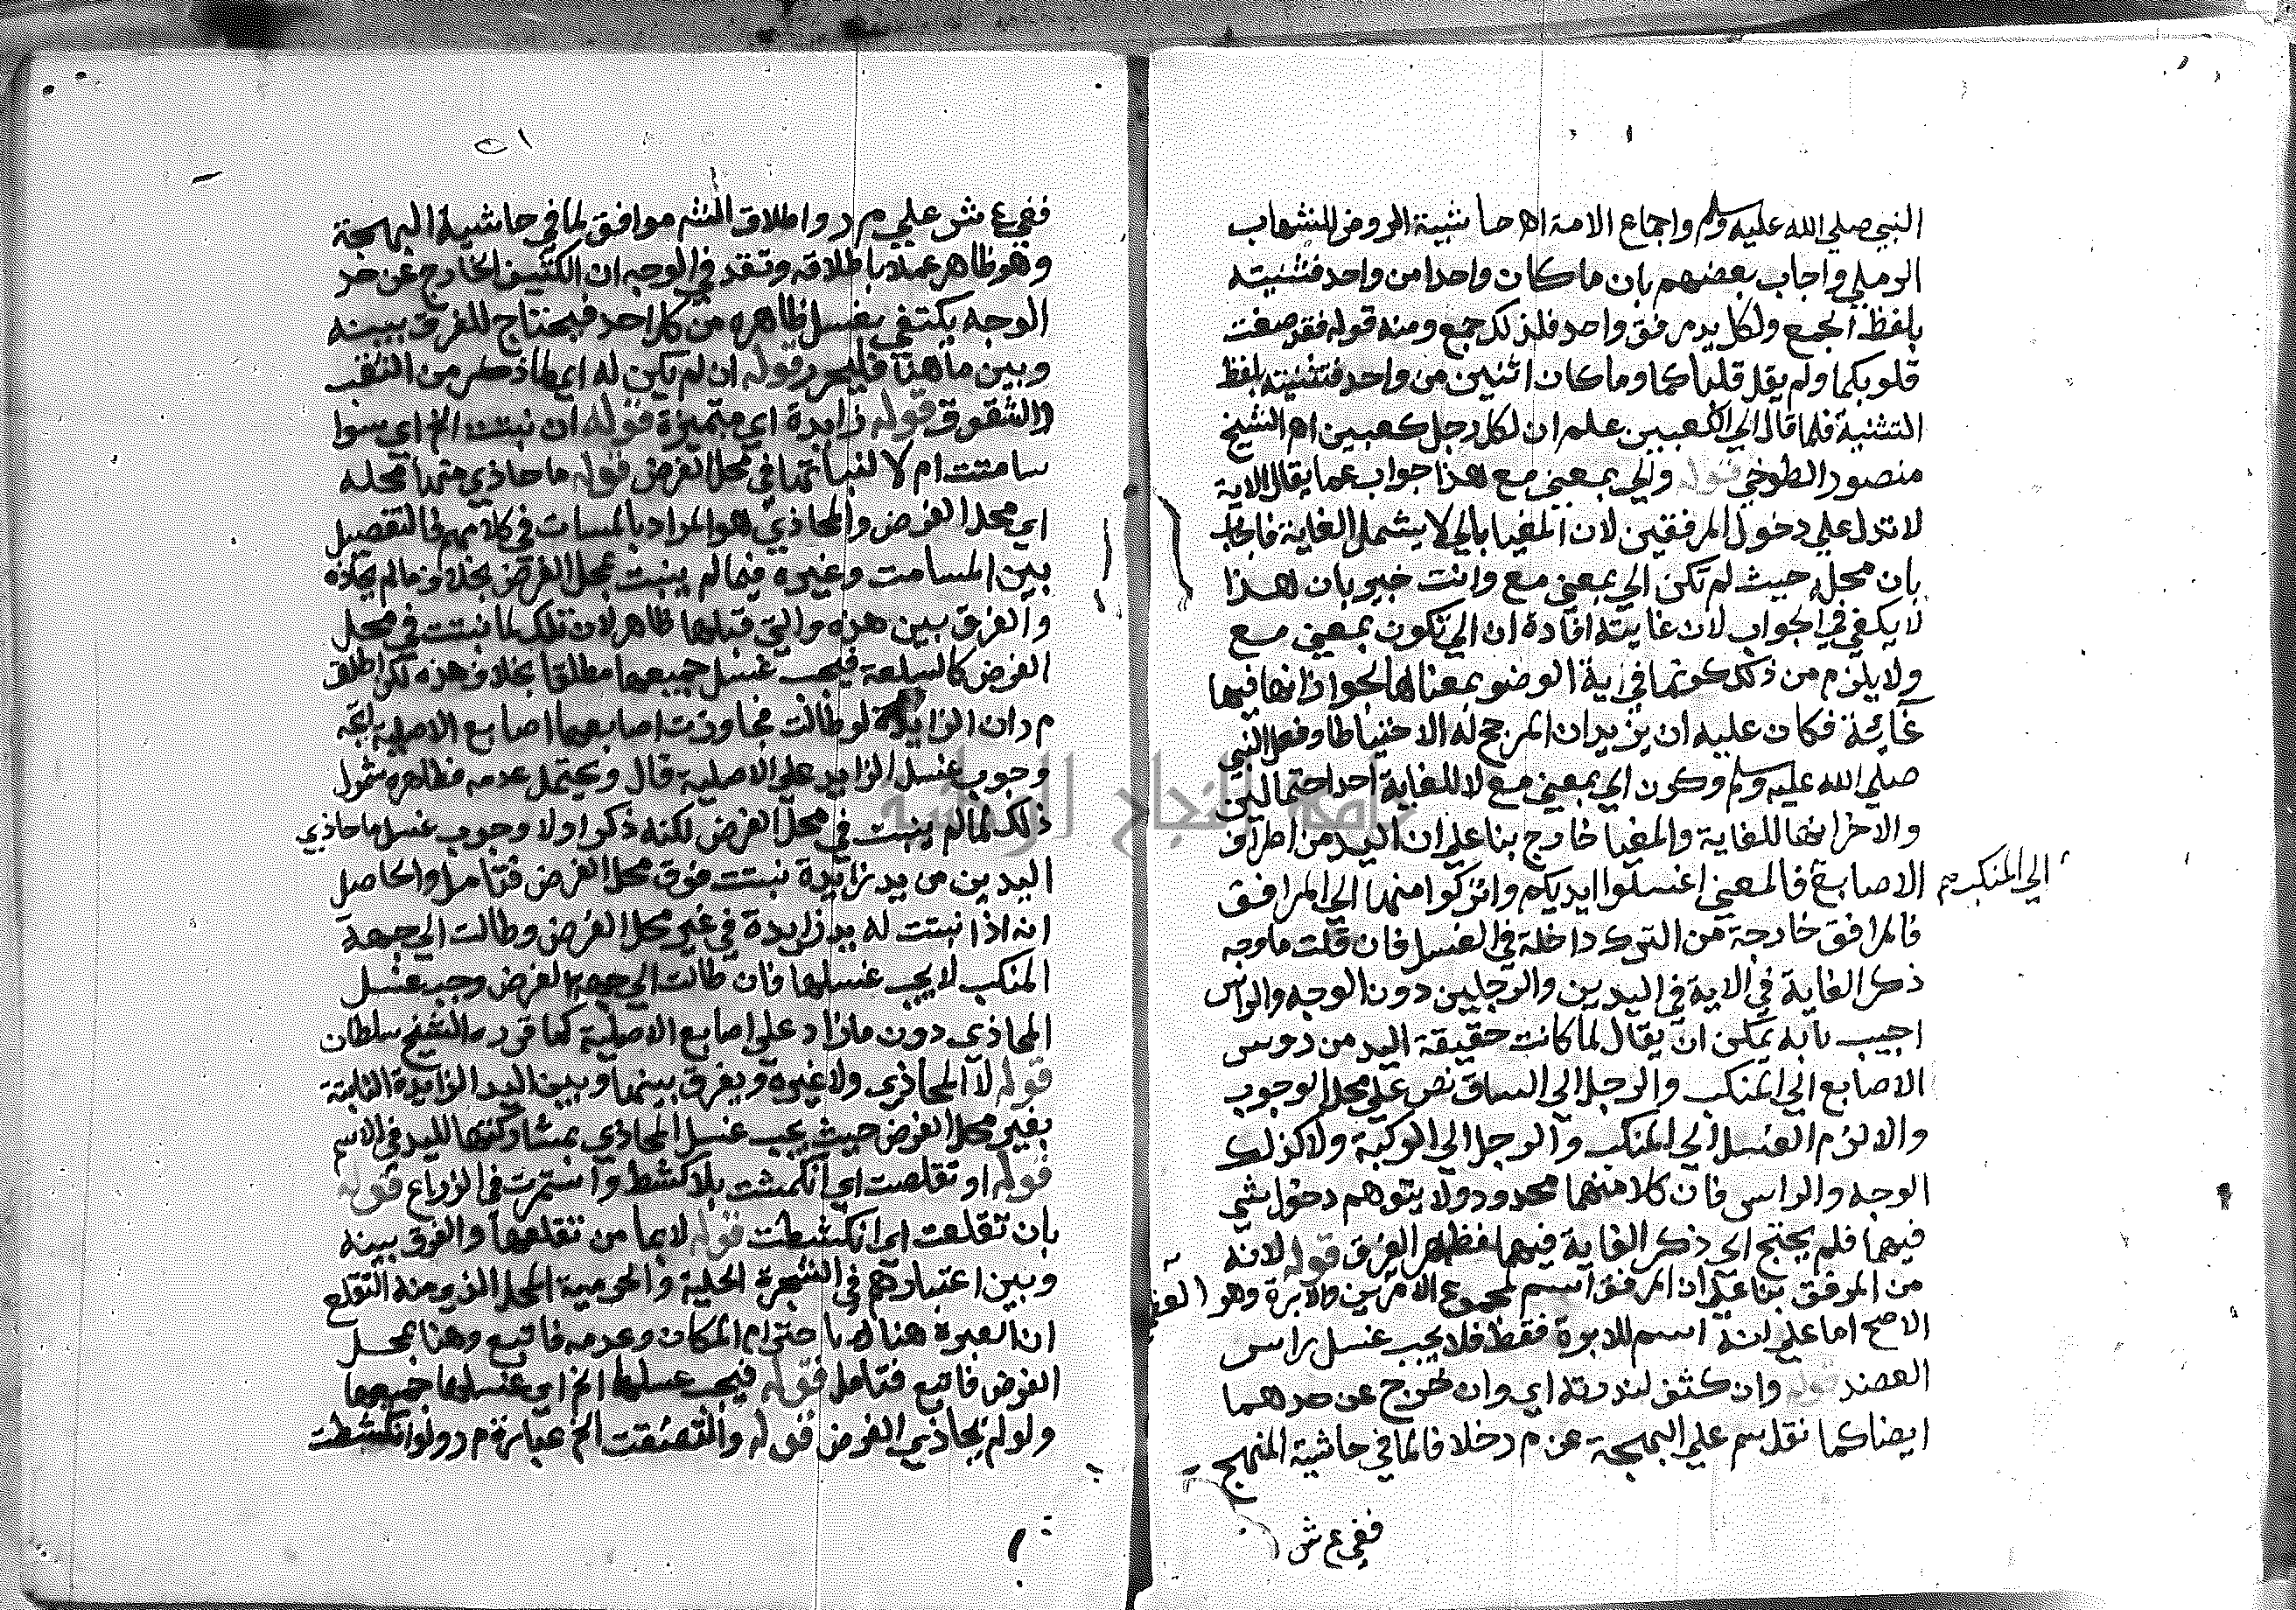 النبي صلي الله عليه وسلم واجماع الامة اه حاشية الروض للشهاب
الرملي واجاب بعضهم بان ما كان واحدا من واحد فتثنيته
بلفظ الجمع ولكل يد مرفق واحد فلذلك جمع ومنه قوله فقد صغت
قلوبكما ولم يقل قلباكما وما كان اثنين من واحد فتثنيته بلفظ
التثنية فلما قال الي الكعبين علم ان لكل رجل كعبين اه الشيخ
منصور الطوخي قوله والي بمعني مع هذا جواب عما يقال الاية
لا تدل علي دخول المرفقين لان المغيا بالي لا يشمل الغاية فاجاب
بان محله حيث لم تكن الي بمعني مع وانت خبير بان هذا
لا يكفي في الجواب لان غايته افادة ان الي تكون بمعني مع
ولا يلزم من ذلك كونها في اية الوضو بمعناها لجواز انها فيها
غائية فكان عليه ان يزيد ان المرجح له الاحتياط او فعل النبي
صلي الله عليه وسلم وكون الي بمعني مع لا للغاية احد احتمالين
والاخر انها للغاية والمغيا خارج بنا علي ان اليد من اطراف
الاصابع فالمعني اغسلوا ايديكم واتركوا منها الي المرافق
الي المنكب
فالمرافق خارجة من الترك داخلة في الغسل فان قلت ما وجه
ذكر الغاية في الاية في اليدين والرجلين دون الوجه والراس
اجيب بانه يمكن ان يقال لما كانت حقيقة اليد من روس
الاصابع الي المنكب والرجل الي الساق نص علي محل الوجوب
والا لزم الغسل الي المنكب والرجل الي الركبة ولا كذلك
الوجه والراس فان كلا منهما محدود ولا يتوهم دخول شي
فيهما فلم يحتج الي ذكر الغاية فيهما فظهر الفرق قوله لانه
من المرفق بنا علي ان المرفق اسم لمجموع الامرين والابرة وهو
الاصح اما علي انه اسم للابرة فقط فلا يجب غسل راس
العضد قوله وان كثف لندرته اي وان خرج عن حدهما
ايضا كما نقل سم علي البهجة عن م ر خلافا لما في حاشية المنهج
ففي ع ش
ففي ع ش علي م ر واطلاق الش موافق لما في حاشية البهجة
وهو ظاهر عملا باطلاقه وتقدم في الوجه ان الكثيف الخارج عن حد
الوجه يكتفي بغسل ظاهره من كل احد فيحتاج للفرق بينه
وبين ما هنا فليحرر قوله ان لم يكن له ايضا ذكر من الثقب
والشقوق قوله زايدة اي متميزة قوله ان نبتت الخ اي سوا
سامتت ام لا لنباتها في محل الفرض قوله ما حاذي منها محله
اي محل الفرض والمحاذي هو المراد بالمسامت في كلامهم في التفصيل
بين المسامت وغيره فيما لم ينبت بمحل الفرض بخلاف ما لم يحاذه
والفرق بين هذه والتي قبلها ظاهر لان تلك لما نبتت في محل
الفرض كالسلعة فيجب غسل جميعها مطلقا بخلاف هذه لكن اطلق
م ر ان الزايدة لو طالت فجاوزت اصابعها اصابع الاصلية اتجه
وجوب غسل الزايد علي الاصلية قال ويحتمل عدمه فظاهره شمول
ذلك لما لم ينبت في محل الفرض لكنه ذكر اولا وجوب غسل ما حاذي
اليدين من يد زايدة نبتت فوق محل الفرض فتامل والحاصل
انه اذا نبتت له يد زايدة في غير محل الفرض وطالت الي جهة
المنكب لا يجب غسلها فان طالت الي جهة الفرض وجب غسل
المحاذي دون ما زاد علي اصابع الاصلية كما قرره الشيخ سلطان
قوله لا المحاذي ولا غيره ويفرق بينها وبين اليد الزايدة النابتة
بغير محل الفرض حيث يجب غسل المحاذي بمشاركتها لليد في الاسم
قوله او تقلصت اي انكمشت بلا كشط واستمرت في الذراع قوله
بان تقلعت اي انكشطت قوله لا بما من تقلعها والفرق بينه
وبين اعتبارهم في الشجرة الحلية والحرمية المحل الذي منه التقلع
ان العبرة هناك باحترام المكان وعدمه فاتبع وهنا بمحل
الفرض فاتبع فتامل قوله فيجب غسلها الخ اي غسلها جميعها
ولو لم يحاذي الفرض قوله والتصقت الخ عبارة م ر ولو انكشطت